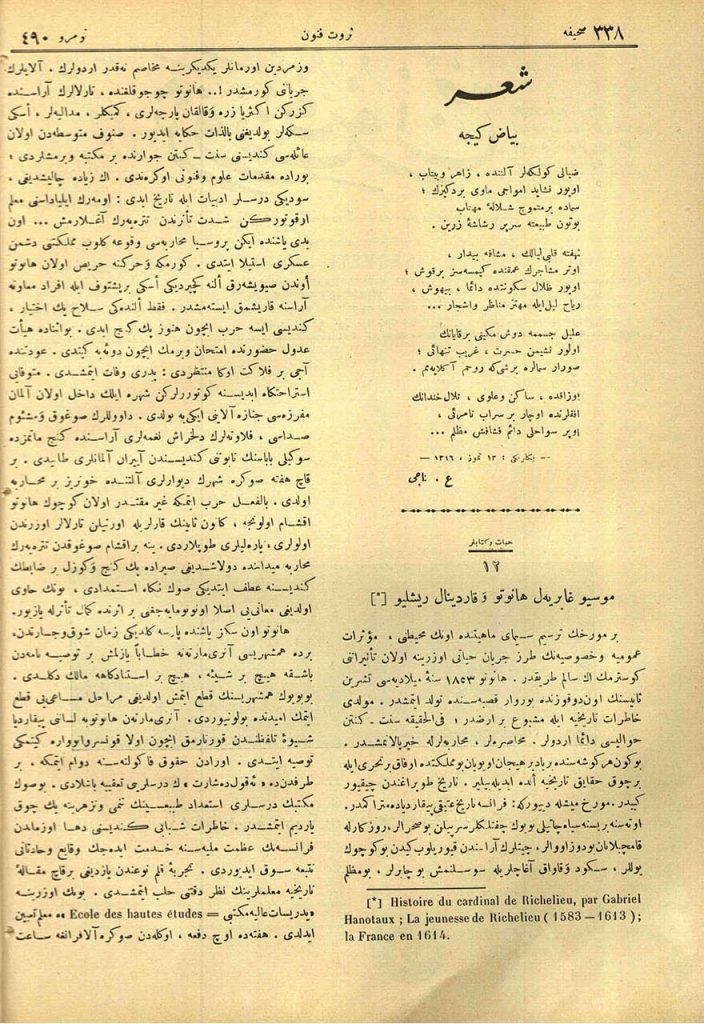 صحيفه ٣٣٨
ثروت فنون
نومرو ٤٩٠
شعر
بياض كيجه
ضيالى كولكه‌لر آلتنده ، زاهر وبيتاب ،
اوپور نشايد امواجى ماوى بردكيزك ؛
ساده برمتموج شلالهٔ مهتاب
بوتون طبيعته سرپر رشاشهٔ زرين .
نهفته قلبى ليالك ، مشافه بيدار ،
اوتر مشاجرك عمقنده كيمسه‌سز برقوش ؛
اوپور ظلال سكوتنده دائما ، بيهوش ،
رياح ليل ايله مهتز مناظر واشجار ...
عليل جسممه دوش مكينى برقايانك
اولور نشيمن حسرت ، غريب تنهائى ؛
صورار سمالره برشى كه روحم آكلايه‌مم .
اوزاقده ، ساكن وعلوى ، تلال خندانك
افقلرنده اوچار بر سراب نامرئى ،
اوپر سواحلى دائم قشافش مظلم ...
— : ١٣ تموز ، ١٣١٦ —
ع . ناجى
حيات وكتابلر
١٢
موسيو غابريه‌ل هانوتو و قاردينال ريشليو [*]
بر مورخك ترسيم سيماى ماهيتنده اونك محيطى ، مؤثرات
عموميه وخصوصيه‌نك طرز جريان حياتى اوزرينه اولان تأثيراتنى
كوسترمك اك سالم طريقدر . هانوتو ١٨٥٣ سنهٔ ميلاديه‌سى تشرين
ثانيسنك اون‌دوقوزنده بوروار قصبه‌سنده تولد ايتمشدر . مولدى
خاطرات تاريخيه ايله مشبوع بر ارضدر ؛ فى‌الحقيقه سنت - كنتن
حواليسى دائما اردولر . محاصره‌لر ، محاربه‌لرله خيرپالانمشدر .
بوكون هركوشه‌سنده رياد برهيجان اويويان بومملكتده اوفاق برتحرى ايله
برچوق حقايق تاريخيه ألده ايديله‌بيلير . تاريخ طوپراغندن چيقيور
كبيدر . مورخ ميشله ديبوركه : فرانسه تاريخ عتيقى پيقارديا‌ده متراكمدر .
اوته‌سنه بريسنه سياه چاتيلى بويوك چفتلكلر سرپيلن بوصحرالر ، روزكارله
قامچيلانان بودوز اووالر ، چيتلرك آراسندن قيوريلوب كيدن بوكوچوك
يوللر ، سكود وقاواق آغاچلريله سوسلنمش بو چايرلر ، بومظلم
[*] Histoire du cardinal de Richelieu, par Gabriel
Hanotaux ; La jeunesse de Richelieu ( 1583 — 1613 ) ;
la France en 1614.
وزمردين اورمانلر يكديكرينه مخاصم نه‌قدر اردولرك . آلايلرك
جرياننى كورمشدر !.. هانوتو چوجوقلغنده ، تارلالرك آراسنده
كزركن اكثريا زره وقالقان پارچه‌لرى ، كميكلر ، مداليه‌لر ، أسكى
سكه‌لر بولديغنى بالذات حكايه ايديور . صنوف متوسطه‌دن اولان
عائله‌سى كنديسنى سنت - كنتن جوارنده بر مكتبه ويرمشلردى ؛
بوراده مقدمات علوم وفنونى اوكرندى . اك زياده چاليشديغى ،
سوديكى درسلر ادبيات ايله تاريخ ايدى : اومه‌رك ايلياداسنى معلم
اوقوتوركن شدت تأثرندن تتره‌يه‌رك آغلارمش ... اون
يدى ياشنده ايكن پروسيا محاربه‌سى وقوعه كلوب مملكتنى دشمن
عسكرى استيلا ايتدى . كورمكه و حركته حريص اولان هانوتو
أوندن صيويشه‌رق ألنه كچيرديكى أسكى برپشتوف ايله افراد معاونه
آراسنه قاريشمق ايسته‌مشدر . فقط ألنده‌كى سلاح پك اختيار ،
كنديسى ايسه حرب ايچون هنوز پك كنج ايدى . بواثناده هيأت
عدول حضورنده امتحان ويرمك ايچون دوئه‌يه كيتدى . عودتنده
آجى بر فلاكت اوكا منتظردى : پدرى وفات ايتمشدى . متوفايى
استراحتكاه ابديسنه كوتورلركن شهره ايلك داخل اولان آلمان
مفرزه‌سى جنازه آلاينى ايكى‌يه بولدى . داوللرك صوغوق ومشئوم
صداسى ، فلاوته‌لرك دلخراش نغمه‌لرى آراسنده كنج ماتمزده
سوكيلى باباسنك تابوتنى كنديسندن آييران آلمانلرى طانيدى . بر
قاچ هفته صوكره شهرك ديوارلرى آلتنده خونريز بر محاربه
اولدى . بالفعل حرب ايتمكه غير مقتدر اولان كوچوك هانوتو
اقشام اولونجه ، كانون ثانينك قارلريله اورتيلن تارلالر اوزرندن
اولولرى ، ياره‌ليلرى طوپلاردى . ينه براقشام صوغوقدن تتره‌يه‌رك
محاربه ميداننده دولاشديغى صيراده پك كنج وكوزل بر ضابطك
كنديسنه عطف ايتديكى صوك نكاه استمدادى ، بونك حاوى
اولديغى معانى‌يى اصلا اونوتمايه‌جغنى بر اثرنده كمال تأثرله يازيور .
هانوتو اون سكز ياشنده پارسه كلديكى زمان شوق وجسارتدن ،
برده همشهريسى آنرى‌مارته‌نه خطاباً يازلمش بر توصيه نامه‌دن
باشقه هيچ بر شيئه ، هيچ بر استنادكاهه مالك دكلدى .
بوبويوك همشهريسنك قطع ايتمش اولديغى مراحل مساعى‌يى قطع
ايتمك اميدنده بولونيوردى . آنرى‌مارته‌ن هانوتويه لسانى پيقارديا
شيوهٔ تلفظندن قورتارمق ايچون اولا قونسرواتوواره كيتمكى
توصيه ايتدى . اورادن حقوق فاكولته‌سنه دوام ايتمكه ، بر
طرفدن‌ده « ئه‌قول‌ده‌شارت » ك درسلرى تعقيبه باشلادى . بوصوك
مكتبك درسلرى استعداد طبيعيسنك تنمى وتزهرينه پك چوق
يارديم ايتمشدر . خاطرات شبابى كنديسنى دها اوزماندن
فرانسه‌نك عظمت مليه‌سنه خدمت ايده‌جك وقايع وحادثاتى
تتبعه سوق ايديوردى . تجربهٔ قلم نوعندن يازديغى برقاچ مقالهٔ
تاريخيه معلملرينك نظر دقتنى جلب ايتمشدى . بونك اوزرينه
« تدريسات عاليه مكتبى = Ecole des hautes études » معلم تعيين
ايدلدى . هفته‌ده اوچ دفعه ، اوكله‌دن صوكره آلافرانغه ساعت